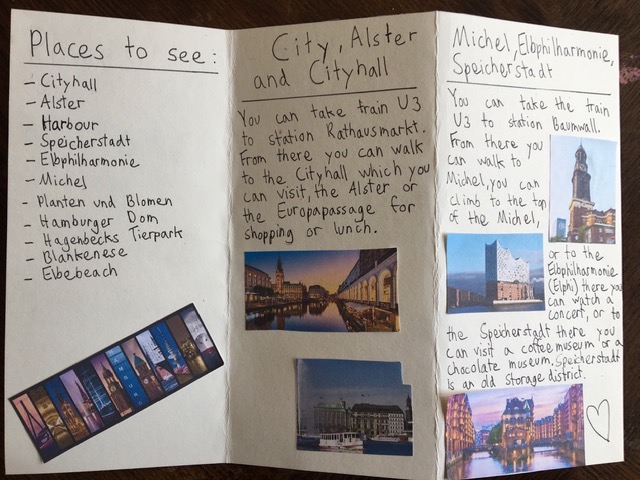 Places to see:
- Cityhall
- Alster
- Harbour
- Speicherstadt
- Elbphilharmonie
- Michel
- Planten und Blomen
- Hamburger Dom
- Hagenbecks Tierpark
- Blankenese
- Elbebeach
HAMBURG
City, Alster
and Cityhall
You can take train U3
to station Rathausmarkt.
From there you can walk
to the Cityhall which you
can visit, the Alster or
the Europapassage for
shopping or lunch.
Michel, Elbphilharmonie,
Speicherstadt
You can take the train
U3 to station Baumwall.
From there you
can walk to
Michel, you can
climb to the top
of the Michel,
or to the
Elbphilharmonie
(Elphi) there you
can watch a
concert, or to
the Speicherstadt there you
can visit a coffee museum or a
chocolate museum. Speicherstadt
is an old storage district.